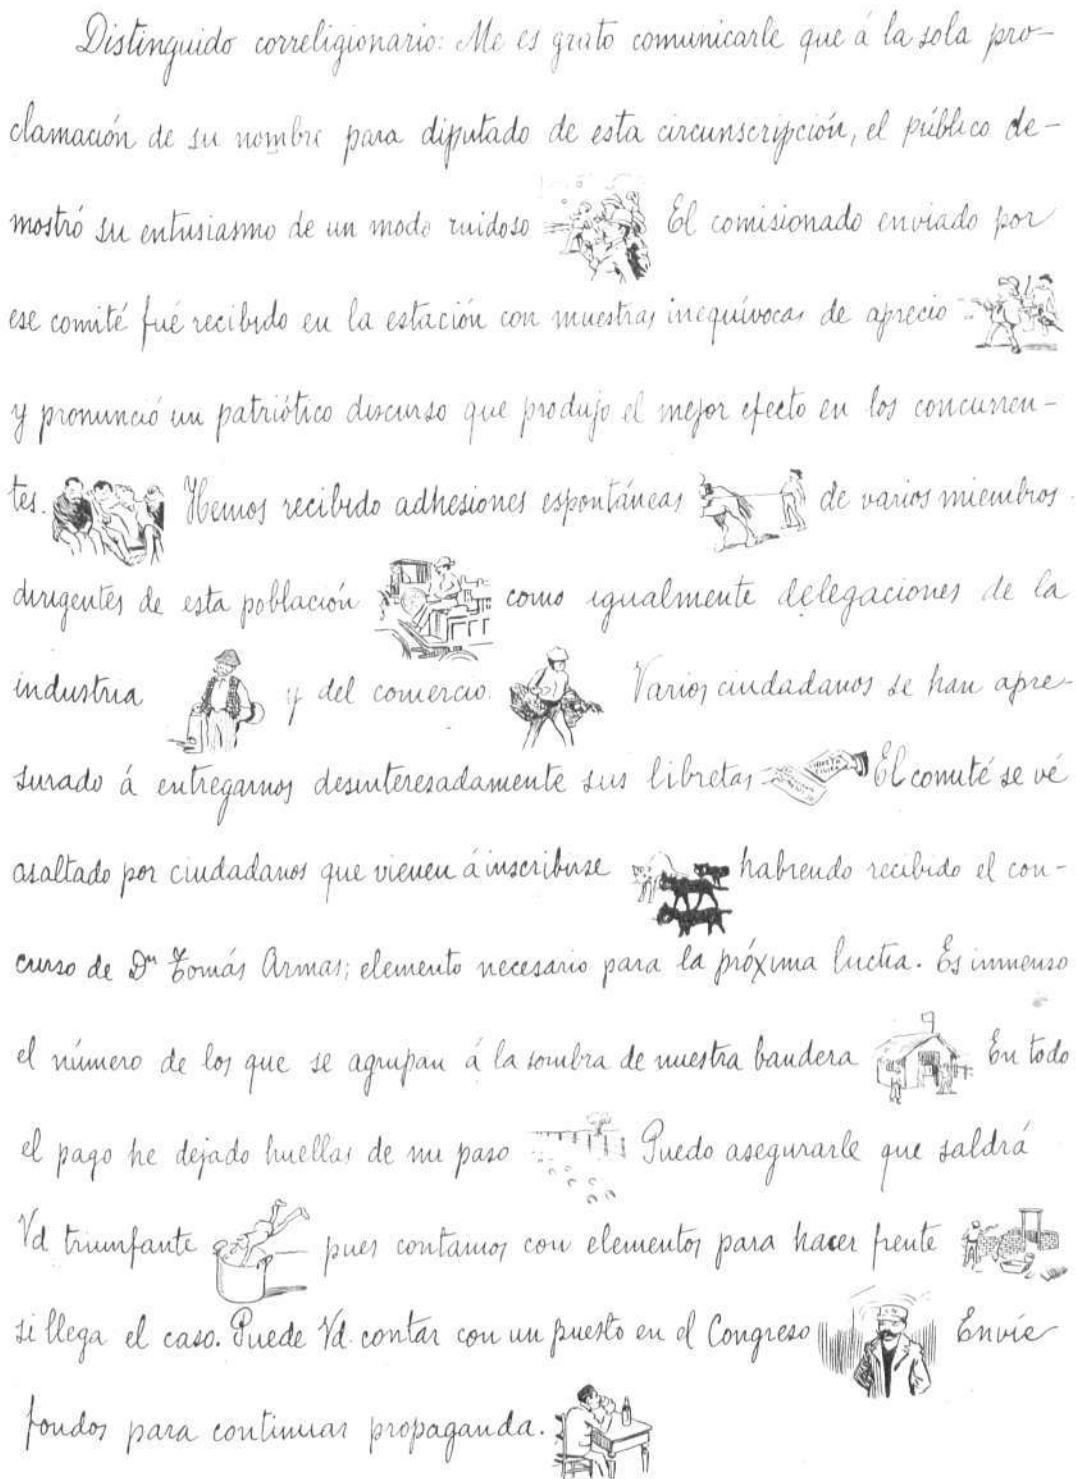 Distinguido correligionario: Me es grato comunicarle que á la sola pro-
clamación de su nombre para diputado de esta circunscripción, el público de-
mostró su entusiasmo de un modo ruidoso El comisionado enviado por
ese comité fué recibido en la estación con muestras inequívocas de aprecio
y pronunció un patriótico discurso que produjo el mejor efecto en los concurren-
tes. Hemos recibido adhesiones espontáneas de varios miembros
dirigentes de esta población como igualmente delegaciones de la
industria y del comercio. Varios ciudadanos se han apre-
surado á entregarnos desinteresadamente sus libretas El comité se vé
asaltado por ciudadanos que vienen á inscribirse habiendo recibido el con-
curso de Dn Tomás Armas; elemento necesario para la próxima lucha. Es inmenso
el número de los que se agrupan á la sombra de nuestra bandera En todo
el pago he dejado huellas de mi paso Puedo asegurarle que saldrá
Vd triunfante pues contamos con elementos para hacer frente
si llega el caso. Puede Vd. contar con un puesto en el Congreso Envíe
fondos para continuar propaganda.